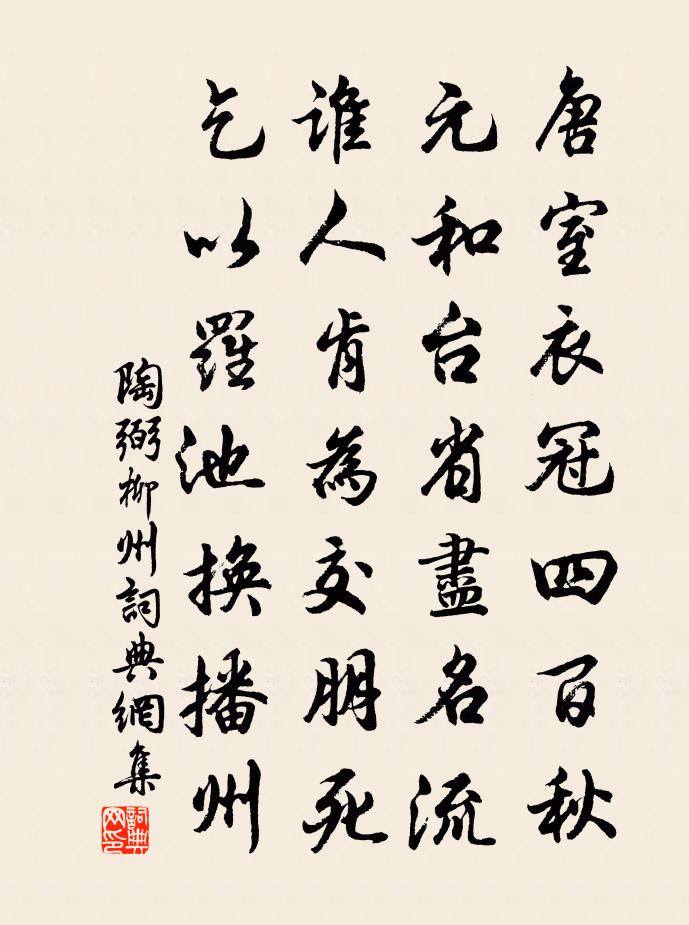 唐室衣冠四百秋
元和台省盡名流
誰人肯為交朋死
乞以羅池換播州
陶弼柳州詞典網集
詞典網印